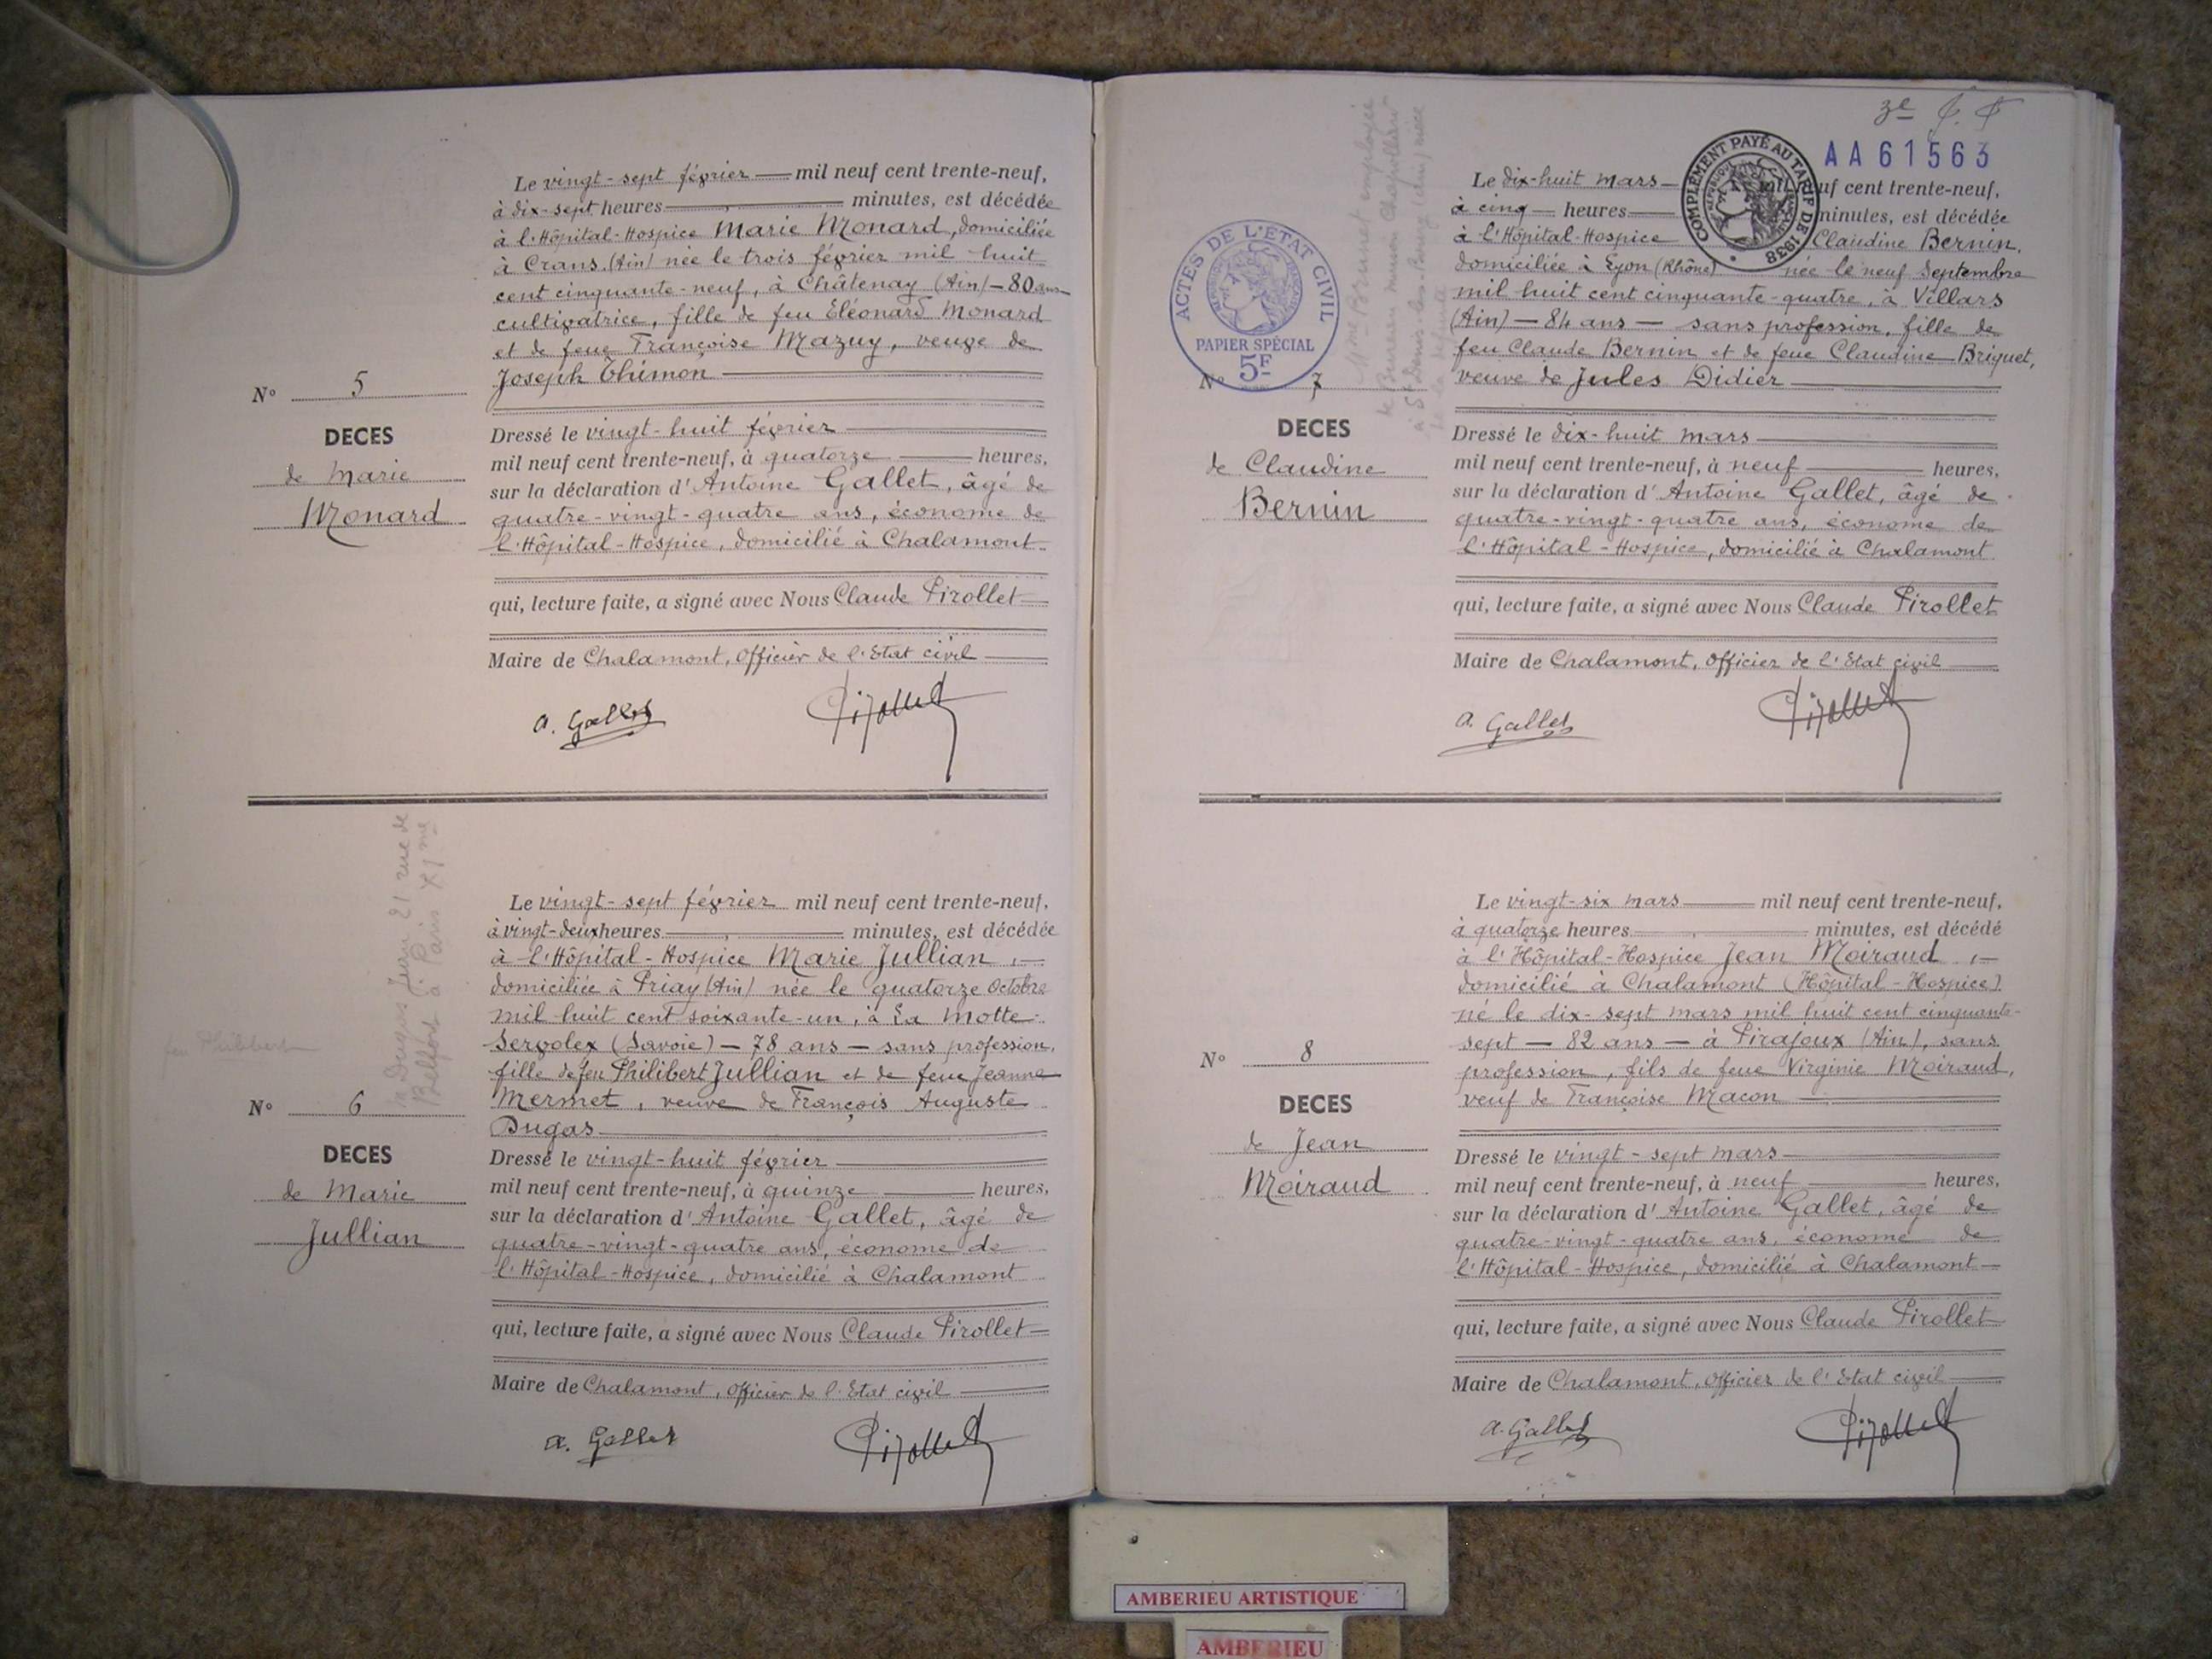 Le vingt-sept février mil neuf cent trente-neuf,
à dix-sept heures minutes, est décédée
à l'Hôpital-Hospice Marie Monard, domiciliée
à Crans (Ain) née le trois février mil huit
cent cinquante-neuf, à Châtenay (Ain) — 80 ans
cultivatrice, fille de feu Eléonard Monard
et de feue Françoise Mazuy, veuve de
Joseph Thimon
N° 5
DECES
de Marie
Monard
Dressé le vingt-huit février
mil neuf cent trente-neuf, à quatorze heures,
sur la déclaration d'Antoine Gallet, âgé de
quatre-vingt-quatre ans, économe de
l'Hôpital-Hospice, domicilié à Chalamont
qui, lecture faite, a signé avec Nous Claude Pirollet
Maire de Chalamont, Officier de l'Etat civil
A. Gallet Pirollet
Dugas 21 rue de
Belfort à Paris XIme
feu Philibert
Le vingt-sept février mil neuf cent trente-neuf,
à vingt-deux heures minutes, est décédée
à l'Hôpital-Hospice Marie Jullian,
domiciliée à Priay (Ain) née le quatorze Octobre
mil huit cent soixante-un, à La Motte-
Servolex (Savoie) — 78 ans — sans profession,
fille de feu Philibert Jullian et de feue Jeanne
Mermet, veuve de François Auguste
Dugas
N° 6
DECES
de Marie
Jullian
Dressé le vingt-huit février
mil neuf cent trente-neuf, à quinze heures,
sur la déclaration d'Antoine Gallet, âgé de
quatre-vingt-quatre ans, économe de
l'Hôpital-Hospice, domicilié à Chalamont
qui, lecture faite, a signé avec Nous Claude Pirollet
Maire de Chalamont, Officier de l'Etat civil
A. Gallet Pirollet
3e
AA61563
COMPLÉMENT PAYÉ AU TARIF DE 1938
ACTES DE L'ETAT CIVIL
PAPIER SPÉCIAL
5F
Mme Brunet employée
à St Denis-les-Bourg (Ain) nièce
de la défunte
Le dix-huit mars mil neuf cent trente-neuf,
à cinq heures minutes, est décédée
à l'Hôpital-Hospice Claudine Bernin,
domiciliée à Lyon (Rhône) née le neuf Septembre
mil huit cent cinquante-quatre, à Villars
(Ain) — 84 ans — sans profession, fille de
feu Claude Bernin et de feue Claudine Briquet,
veuve de Jules Didier
N° 7
DECES
de Claudine
Bernin
Dressé le dix-huit mars
mil neuf cent trente-neuf, à neuf heures,
sur la déclaration d'Antoine Gallet, âgé de
quatre-vingt-quatre ans, économe de
l'Hôpital-Hospice, domicilié à Chalamont
qui, lecture faite, a signé avec Nous Claude Pirollet
Maire de Chalamont, Officier de l'Etat civil
A. Gallet Pirollet
Le vingt-six mars mil neuf cent trente-neuf,
à quatorze heures minutes, est décédé
à l'Hôpital-Hospice Jean Moiraud,
domicilié à Chalamont (Hôpital-Hospice)
né le dix-sept mars mil huit cent cinquante-
sept — 82 ans — à Pirajoux (Ain), sans
profession, fils de feue Virginie Moiraud,
veuf de Françoise Macon
N° 8
DECES
de Jean
Moiraud
Dressé le vingt-sept mars
mil neuf cent trente-neuf, à neuf heures,
sur la déclaration d'Antoine Gallet, âgé de
quatre-vingt-quatre ans, économe de
l'Hôpital-Hospice, domicilié à Chalamont
qui, lecture faite, a signé avec Nous Claude Pirollet
Maire de Chalamont, Officier de l'Etat civil
A. Gallet Pirollet
AMBERIEU ARTISTIQUE
AMBERIEU